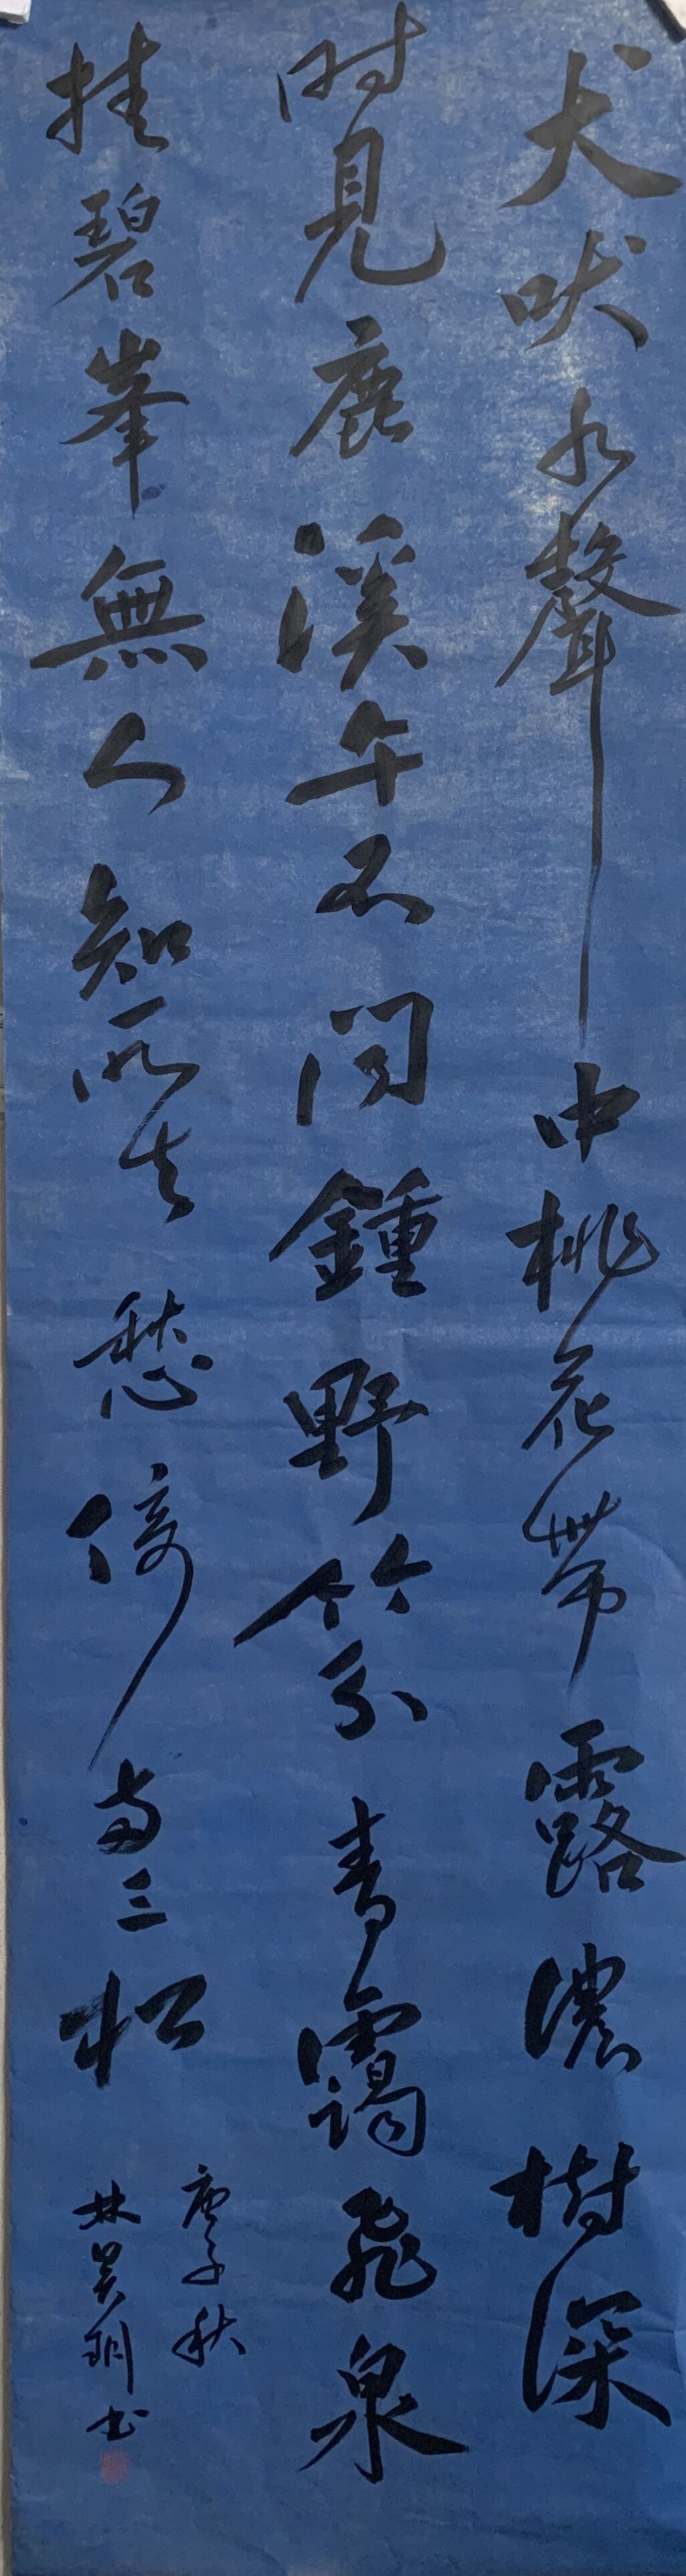 犬吠水聲中桃花帶露濃樹深
時見鹿溪午不聞鍾野竹分青靄飛泉
挂碧峯無人知所去愁倚兩三松
庚子秋
林昊玥书